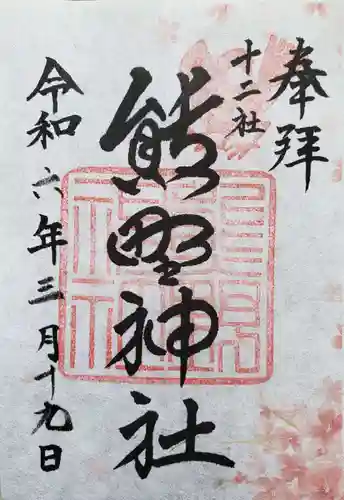 奉拝
十二社
熊野神社
令和六年三月十九日